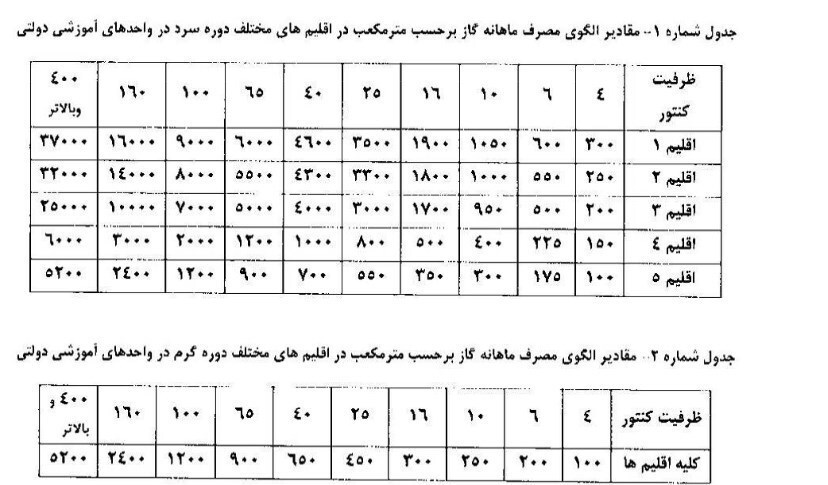 جدول شماره ۱.. مقادیر الگوی مصرف ماهانه گاز برحسب مترمکعب در اقلیم های مختلف دوره سرد در واحدهای آموزشی دولتی
ظرفیت کنتور ۴ ۶ ۱۰ ۱۶ ۲۵ ۴۰ ۶۵ ۱۰۰ ۱۶۰ ۴۰۰ وبالاتر
اقلیم ۱ ۳۰۰ ۶۰۰ ۱۰۵۰ ۱۹۰۰ ۳۵۰۰ ۴۶۰۰ ۶۰۰۰ ۹۰۰۰ ۱۶۰۰۰ ۳۷۰۰۰
اقلیم ۲ ۲۵۰ ۵۵۰ ۱۰۰۰ ۱۸۰۰ ۳۳۰۰ ۴۳۰۰ ۵۵۰۰ ۸۰۰۰ ۱۴۰۰۰ ۳۲۰۰۰
اقلیم ۳ ۲۰۰ ۵۰۰ ۹۵۰ ۱۷۰۰ ۳۰۰۰ ۴۰۰۰ ۵۰۰۰ ۷۰۰۰ ۱۰۰۰۰ ۲۵۰۰۰
اقلیم ۴ ۱۵۰ ۲۲۵ ۴۰۰ ۵۰۰ ۸۰۰ ۱۰۰۰ ۱۲۰۰ ۲۰۰۰ ۳۰۰۰ ۶۰۰۰
اقلیم ۵ ۱۰۰ ۱۷۵ ۳۰۰ ۳۵۰ ۵۵۰ ۷۰۰ ۹۰۰ ۱۲۰۰ ۲۴۰۰ ۵۲۰۰
جدول شماره ۲.. مقادیر الگوی مصرف ماهانه گاز برحسب مترمکعب در اقلیم های مختلف دوره گرم در واحدهای آموزشی دولتی
ظرفیت کنتور ۴ ۶ ۱۰ ۱۶ ۲۵ ۴۰ ۶۵ ۱۰۰ ۱۶۰ ۴۰۰ و بالاتر
کلیه اقلیم ها ۱۰۰ ۲۰۰ ۲۵۰ ۳۰۰ ۴۵۰ ۶۵۰ ۹۰۰ ۱۲۰۰ ۲۴۰۰ ۵۲۰۰